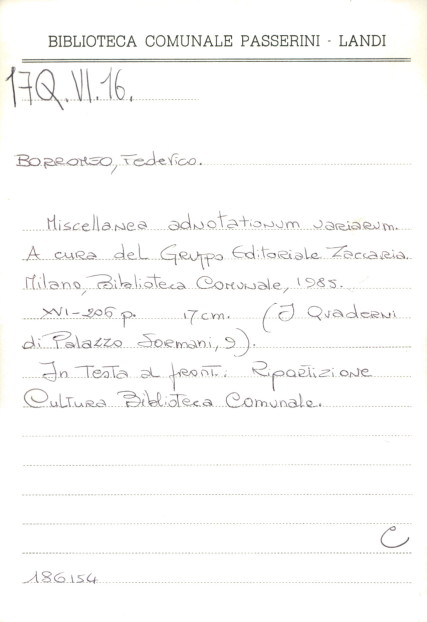 BIBLIOTECA COMUNALE PASSERINI - LANDI
17Q.VI.16.
BORROMEO, Federico.
Miscellanea adnotationum variarum.
A cura del Gruppo Editoriale Zaccaria.
Milano, Biblioteca Comunale, 1985.
XVI-206 p. 17 cm. (I Quaderni
di Palazzo Sormani, 9).
In testa al front.: Ripartizione
Cultura Biblioteca Comunale.
C
186154